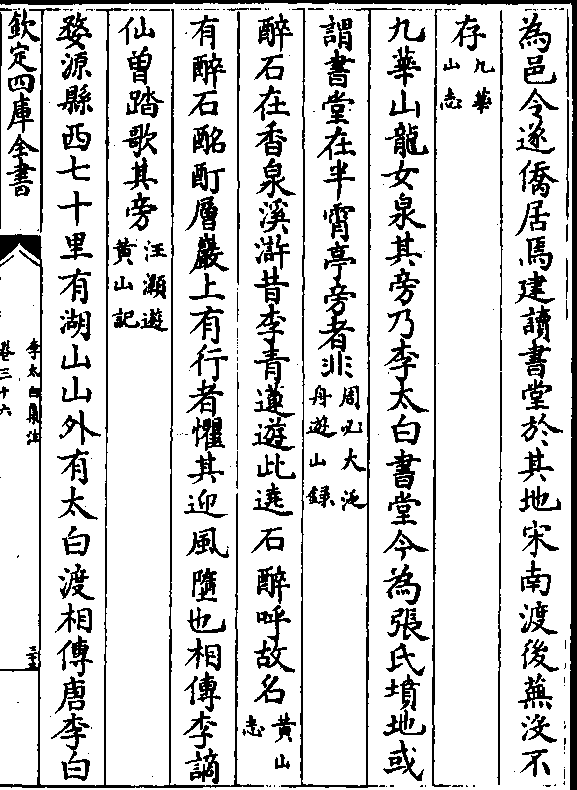 為邑令遂僑居焉建讀書堂於其地宋南渡後蕪沒不
存九華山志
九華山龍女泉其旁乃李太白書堂今為張氏墳地或
謂書堂在半霄亭旁者非周必大泛舟遊山錄
醉石在香泉溪滸昔李青蓮遊此遶石醉呼故名黃山志
有醉石酩酊層巖上有行者懼其迎風墮也相傳李謫
仙曾踏歌其旁汪灝遊黃山記
婺源縣西七十里有湖山山外有太白渡相傳唐李白
欽定四庫全書
李太白集注
卷三十六
三五